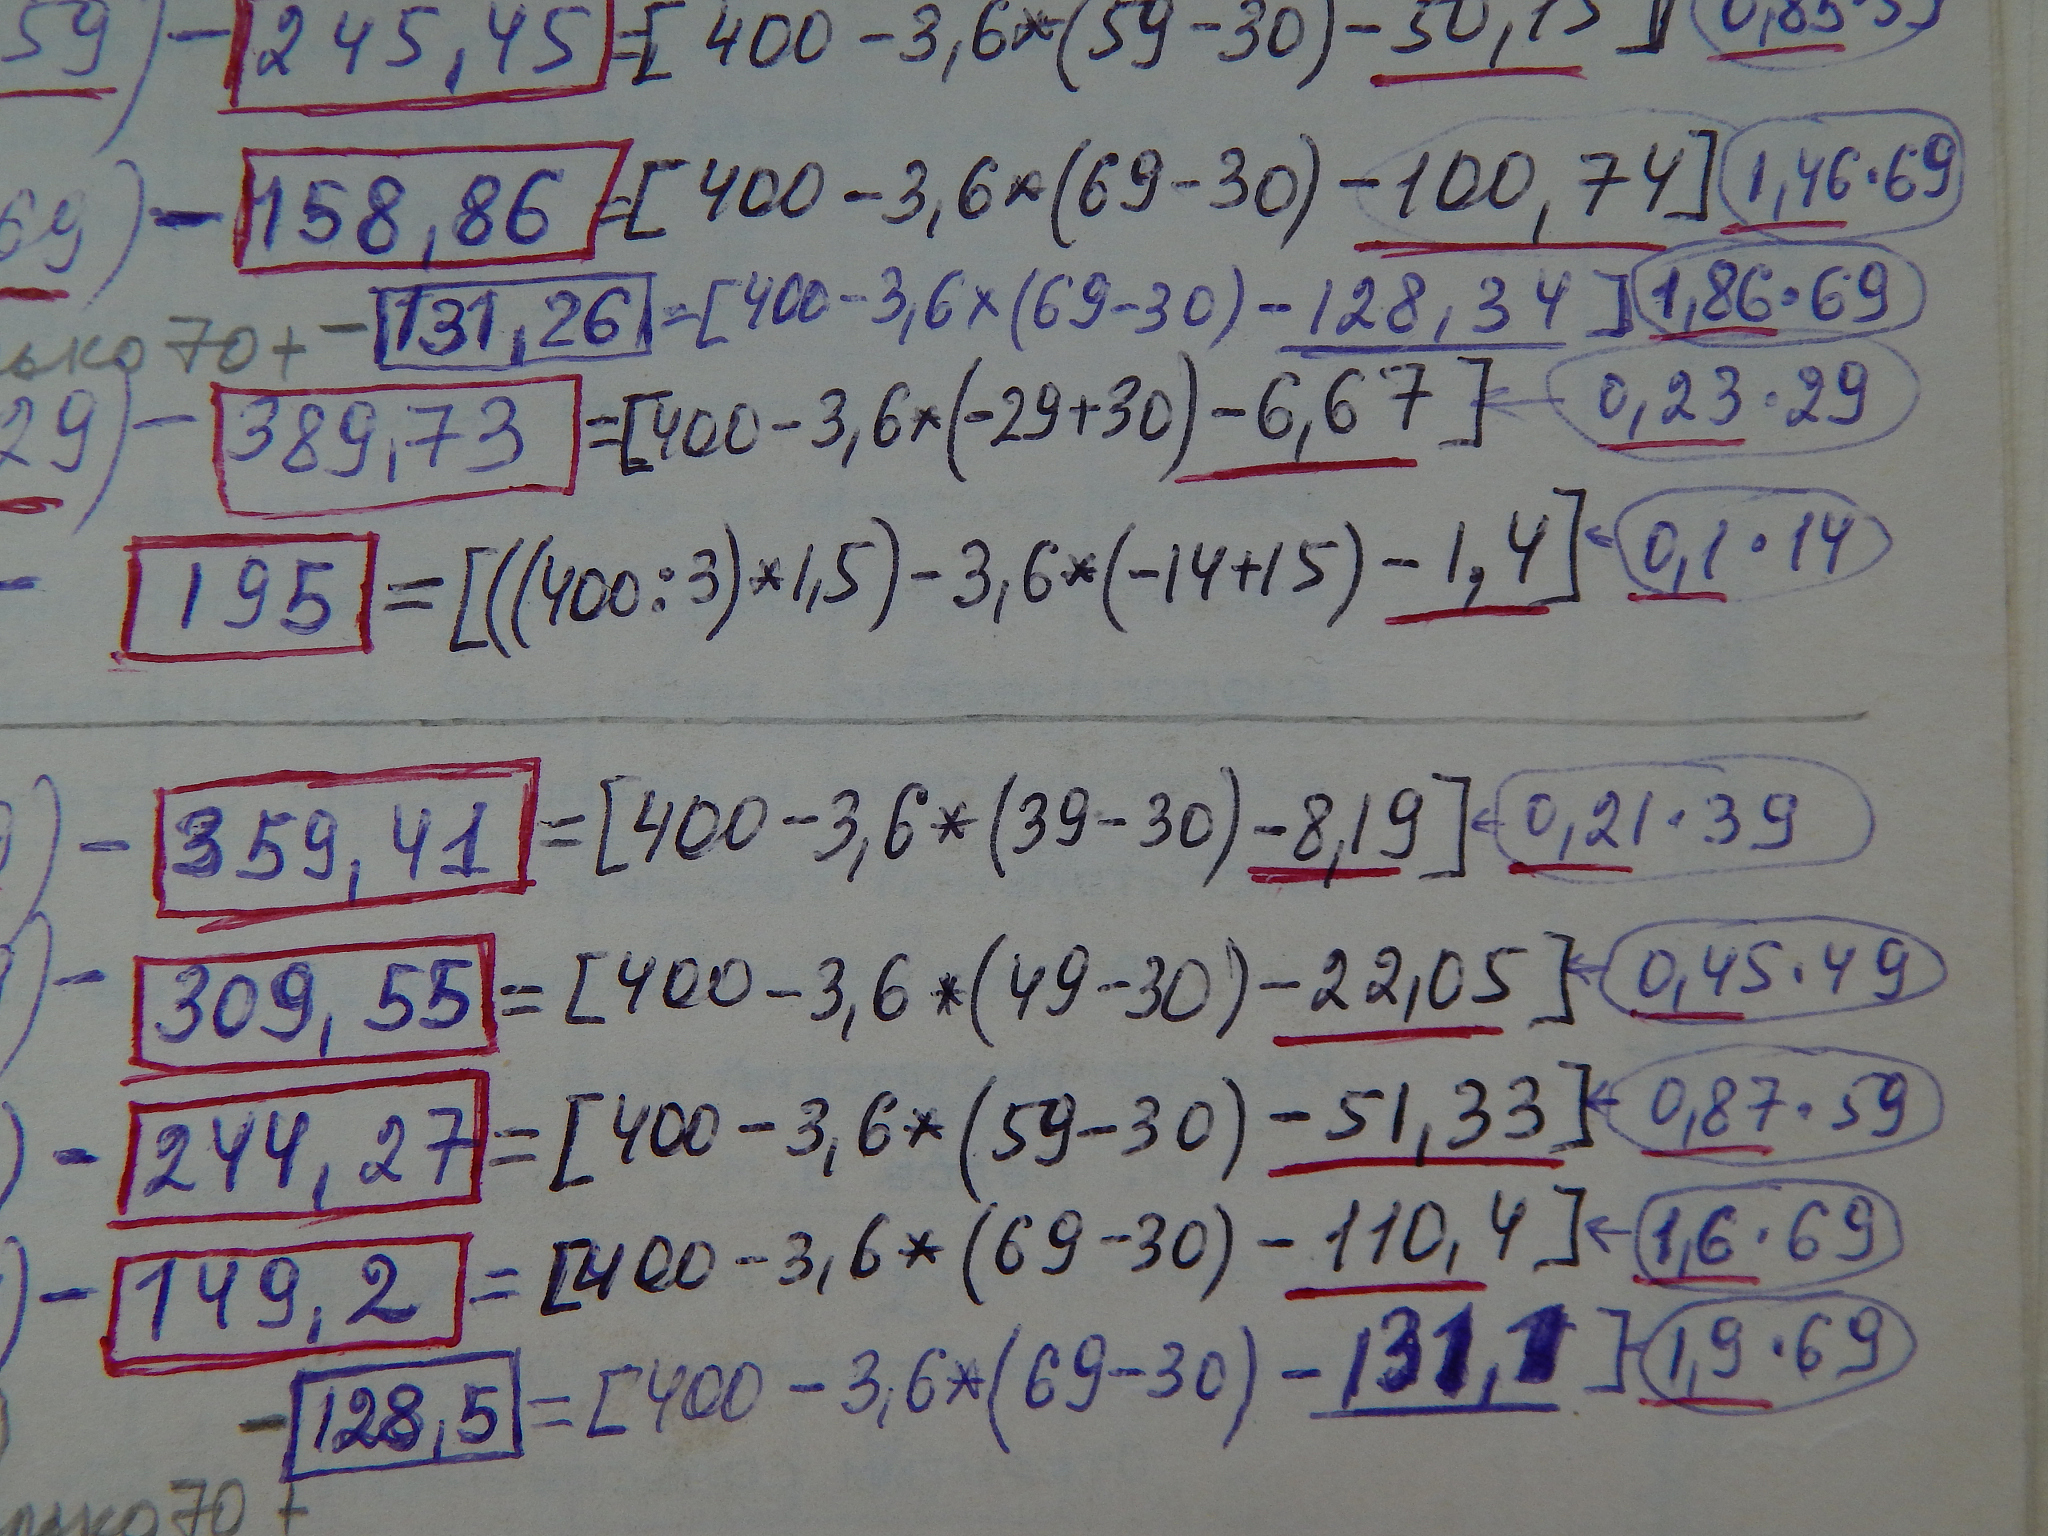 59) - 245,45 = [400 - 3,6*(59-30) - 50,15] 0,85·59
69) - 158,86 = [400 - 3,6*(69-30) - 100,74] 1,46·69
70+ - 131,26 = [400 - 3,6*(69-30) - 128,34] 1,86·69
29) - 389,73 = [400 - 3,6*(-29+30) - 6,67] ← 0,23·29
- 195 = [((400:3)*1,5) - 3,6*(-14+15) - 1,4] ← 0,1·14
) - 359,41 = [400 - 3,6*(39-30) - 8,19] ← 0,21·39
) - 309,55 = [400 - 3,6*(49-30) - 22,05] ← 0,45·49
) - 244,27 = [400 - 3,6*(59-30) - 51,33] ← 0,87·59
) - 149,2 = [400 - 3,6*(69-30) - 110,4] ← 1,6·69
- 128,5 = [400 - 3,6*(69-30) - 131,1] 1,9·69
70 +